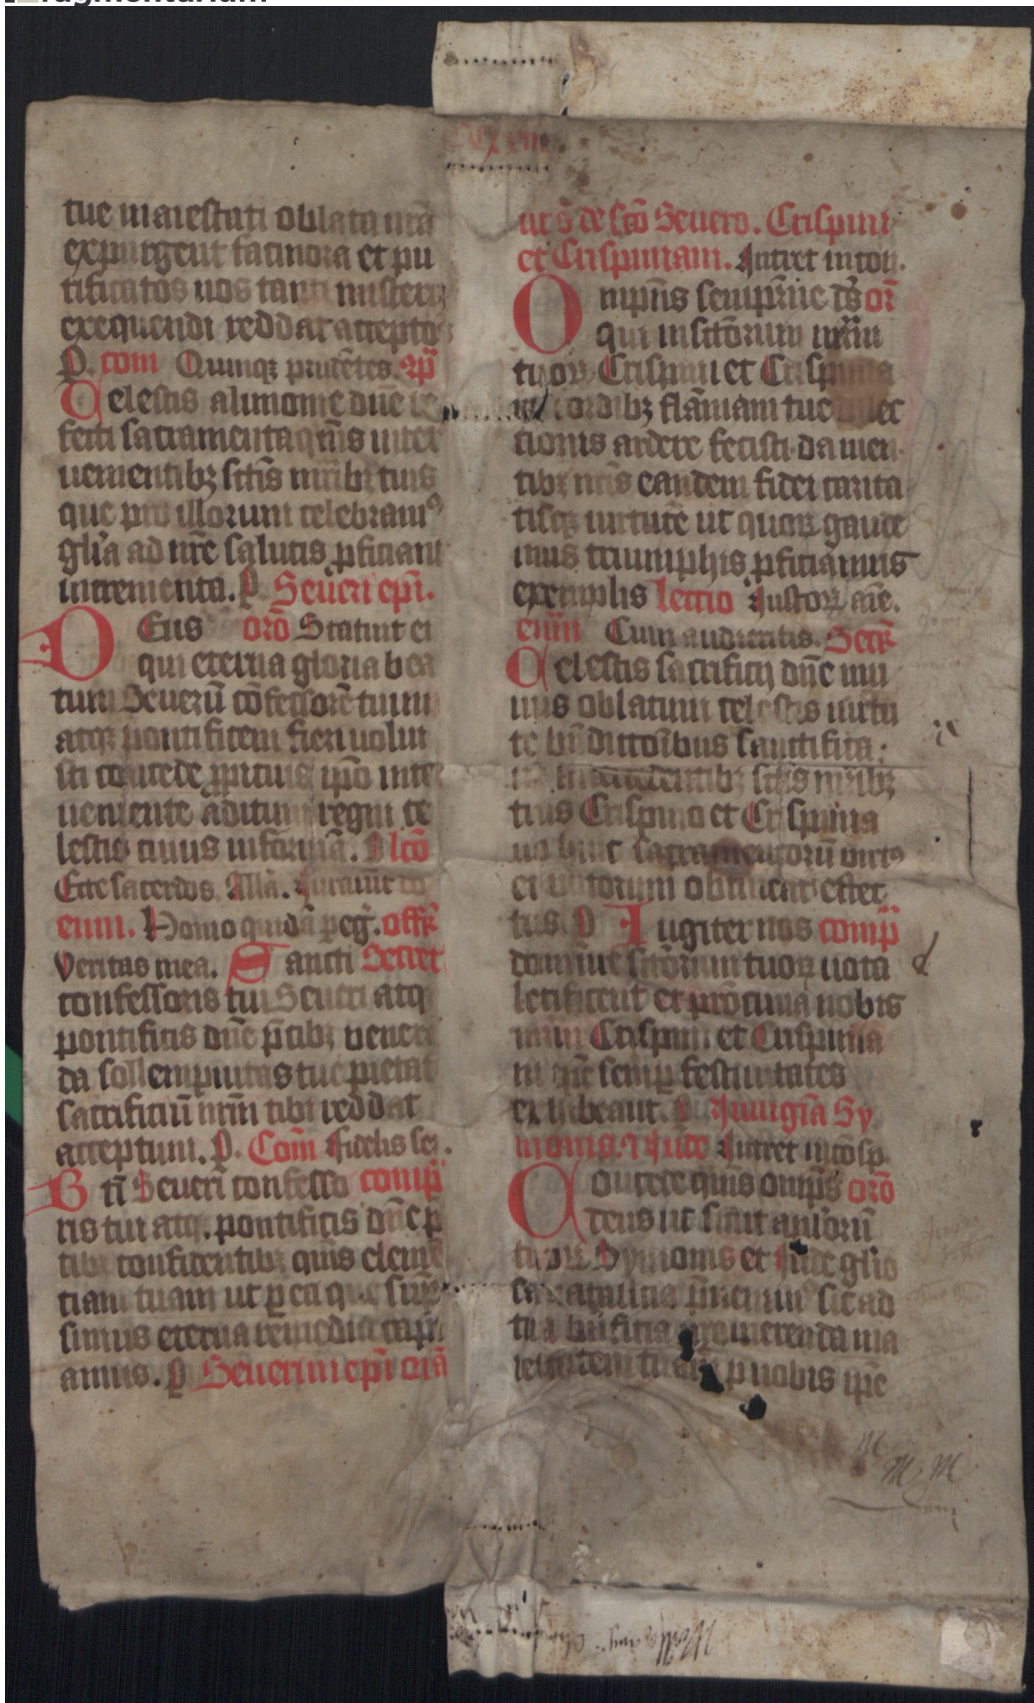 tue maiestati oblata nr̄a
expurgent facinora et pu
rificatos uos tanti misterii
exequendi reddat accepto
P. com Quinqꝫ prudētes. 9p̄
Celestis alimonie dn̄e re
fecti sacramenta q̄s inter
uenientibꝫ sc̄tis mr̄ibꝫ tuis
que pro illorum celebramꝰ
gl̄ia ad nr̄e salutis ꝓficiant
incrementa. P Seueri ep̄i.
DEus or̄o Statuit ei
qui eterna gloria bea
tum Seuerū cōfessorē tuum
atqꝫ pontificem fieri uolui
sti concede ꝓpicius ip̄o inte
ueniente aditum regni ce
lestis
Ecce sacerdos. All̄a. Iurauit
eum. Homo quidā peg̃. offr̄
Veritas mea. Sancti Secret
confessoris tui Seueri atqꝫ
pontificis dn̄e p̄cibꝫ uenerā
da sollempnitas tue pietati
sacrificiū nr̄m tibi reddat
acceptum. P. Com̄ Fidelis ser.
Bn̄ Seueri confesso comp̄
ris tui atqꝫ pontificis dn̄e p̄
tibꝫ confidentibꝫ q̄s clemē
tiam tuam ut p̱ ea que sūp
simus eterna remedia capi
amus. P Seuerini ep̄i oīa
ut s̄ de sc̄o Seuero. Crispini
et Crispiniani. Intret in cou.
Omp̄ns semp̄rne ds̄ or̄
qui in sc̄torum mr̄iu
tuoꝝ Crispini et Crispinia
ni cordibꝫ flāmam tue dilec
tionis ardere fecisti da men
tibꝫ nr̄is eandem fidei carita
tisqꝫ uirtutē ut quoꝝ gaude
mus triumphis ꝓficiamus
exemplis lectio Iustoꝝ aīe.
eūm Cum audieritis. Secr̄
Celestis sacrificij dn̄e mu
nus oblatum celestis uirtu
te bn̄dictōibus sanctifica:
sc̄tis mr̄ibꝫ
tuis Crispino et Crispinia
no hunc sacramentorū
obtineat effec
tus. P Iugiter nos comp̄
domine sc̄torum tuoꝝ uota
letificent et p̄rocinia nobis
mr̄um Crispini et Crispinia
ni q̄s semp̱ festiuitates
exhibeant. P In uigīa Sy
monis ⁊ Iude Intret in cōsp.
Concede q̄s omp̄s or̄o
deus ut sicut apl̄orū
tuoꝝ Symonis et Iude glio
sa natalicia p̄uenimꝰ sic ad
tua bn̄ficia promerenda ma
iestatem tuam p nobis ip̄e